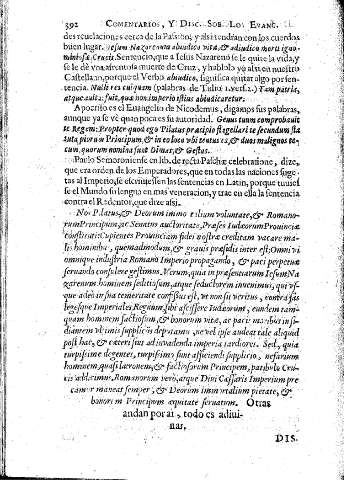 392 COMENTARIOS, Y DISC. SOB. LOS EVANG.
des reuelaciones cerca de la Pasion; y alsi tendran con los cuerdos
buen lugar. Iesum Nazarenum abiudico vita, & adiudico morti igno
miniosæ, Crucis. Sentenciò, que a Iesus Nazareno se le quite la vida, y
se le dè vna afrentosa muerte de Cruz, y hablolo yo assi en nuestro
Castellano, porque el Verbo, abiudico, significa quitar algo por sen-
tencia. Nulli res cuiquam (palabras de Tulio 1. verr.) Tam patria,
atque auita fuit, qua non imperio istius abiudicaretur.
Apocrifo es el Euangelio de Nicodemus, digamos sus palabras,
aunque ya se vè quan poca es su autoridad. Genus tuum comprobauit
te Regem: Propter quod ego Pilatus præcipio flagellari te secundum sta
tuta priorum Principum, & in eo loco vbi tentus es, & duos malignos te-
cum, quorum nomina sunt Dimas, & Gestas.
Paulo Semproniense en lib. de recta Paschæ celebratione, dize,
que era orden de los Emperadores, que en todas las naciones suge-
tas al Imperio, se escriuiessen las sentencias en Latin, porque tuuies-
se el Mundo su lengua en mas veneracion, y trae en ella la sentencia
contra el Redentor, que dize assi.
Nos Pilatus, & Deorum immortalium voluntate, & Romano-
rum Principum, ac Senatus auctoritate, Præses Iudæorum Prouinciæ
constituti: Cupientes Prouinciam fidei nostræ creditam vacare ma-
lis hominibus, quemadmodum, & grauis præsidis inter est: Omni vi
omnique industria Romano Imperio propagando, & paci perpetuæ
seruando consulere gestimus. Verum, quia in præsentiarum Iesum Na
zarenum hominem seditiosum, atque seductorem inuenimus, qui vs-
que adeo in sua temeritate confisus est, vt non sit veritus, contra sas
legesque Imperiales, Regnum sibi asciscere Iudæorum, eundem tam-
quam hominem factiosum, & bonorum vitæ, ac pacis manibus in-
dianiem vltimis supplicijs deputamus, ne vel ipse audeat tale aliquid
post hac, & cæteri sus ad inuadenda imperia tardiores. Sed, quia
turpissime degentes, turpissimo sunt afficiendi supplicio, nefarium
hominem, quasi latronem, & factiosorum Principem, patibulo Cru-
cis addicimus, Romanorum verò, atque Diui Cæsaris Imperium pre
camur maneat semper, & Deorum immortalium pietate, &
bonorum Principum æquitate seruatum. Otras
andan por ai, todo es adiui-
nar.
DIS.